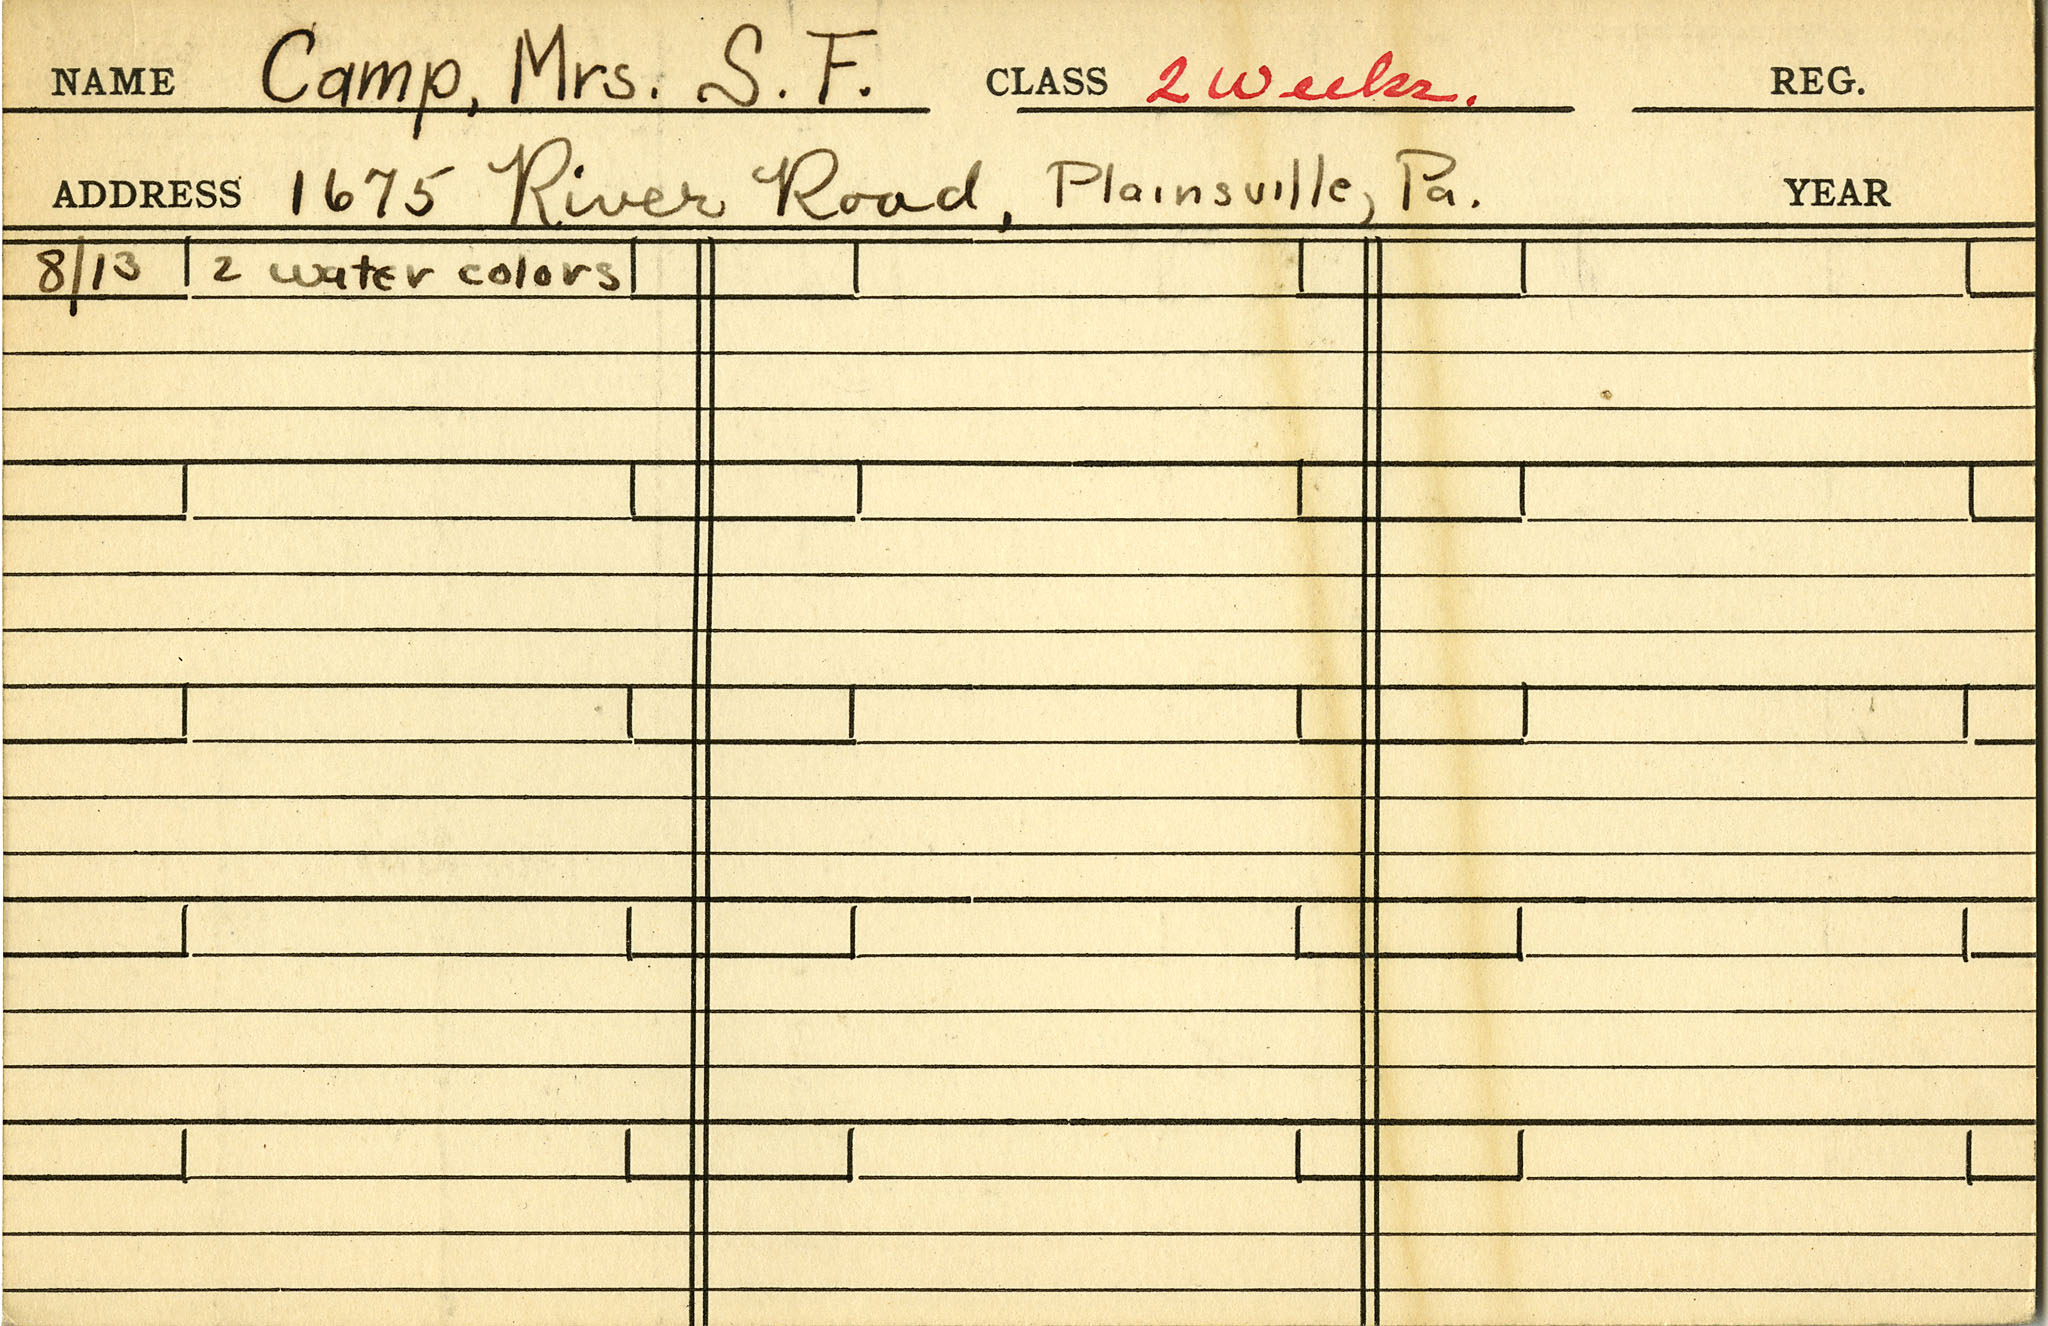 NAME Camp, Mrs. S. F. CLASS 2 Weeks. REG.
ADDRESS 1675 River Road, Plainsville, Pa. YEAR
8/13 2 water colors